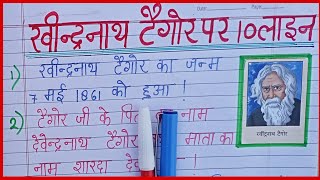 रवीन्द्रनाथ टैगोर पर 10 लाइन
1) रवीन्द्रनाथ टैगोर का जन्म
7 मई 1861 को हुआ !
2) टैगोर जी के नाम
देवेन्द्रनाथ टैगोर माता का
नाम शारदा !
रवीन्द्रनाथ टैगोर